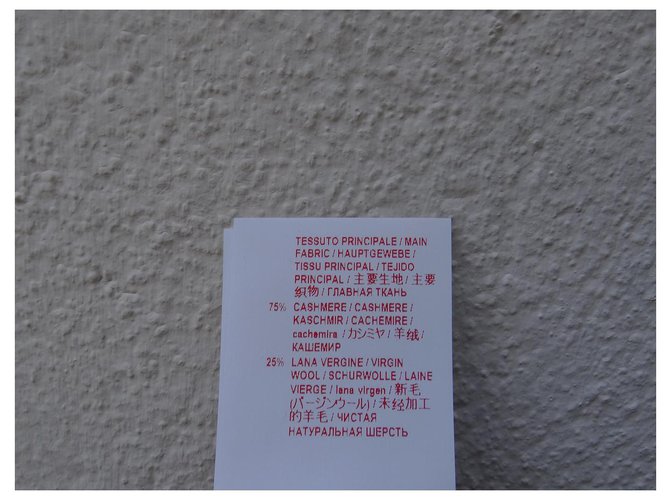 TESSUTO PRINCIPALE / MAIN
FABRIC / HAUPTGEWEBE /
TISSU PRINCIPAL / TEJIDO
PRINCIPAL / 主要生地 / 主要
织物 / ГЛАВНАЯ ТКАНЬ
75% CASHMERE / CASHMERE /
KASCHMIR / CACHEMIRE /
cachemira / カシミヤ / 羊绒 /
КАШЕМИР
25% LANA VERGINE / VIRGIN
WOOL / SCHURWOLLE / LAINE
VIERGE / lana virgen / 新毛
(バージンウール) / 未经加工
的羊毛 / ЧИСТАЯ
НАТУРАЛЬНАЯ ШЕРСТЬ